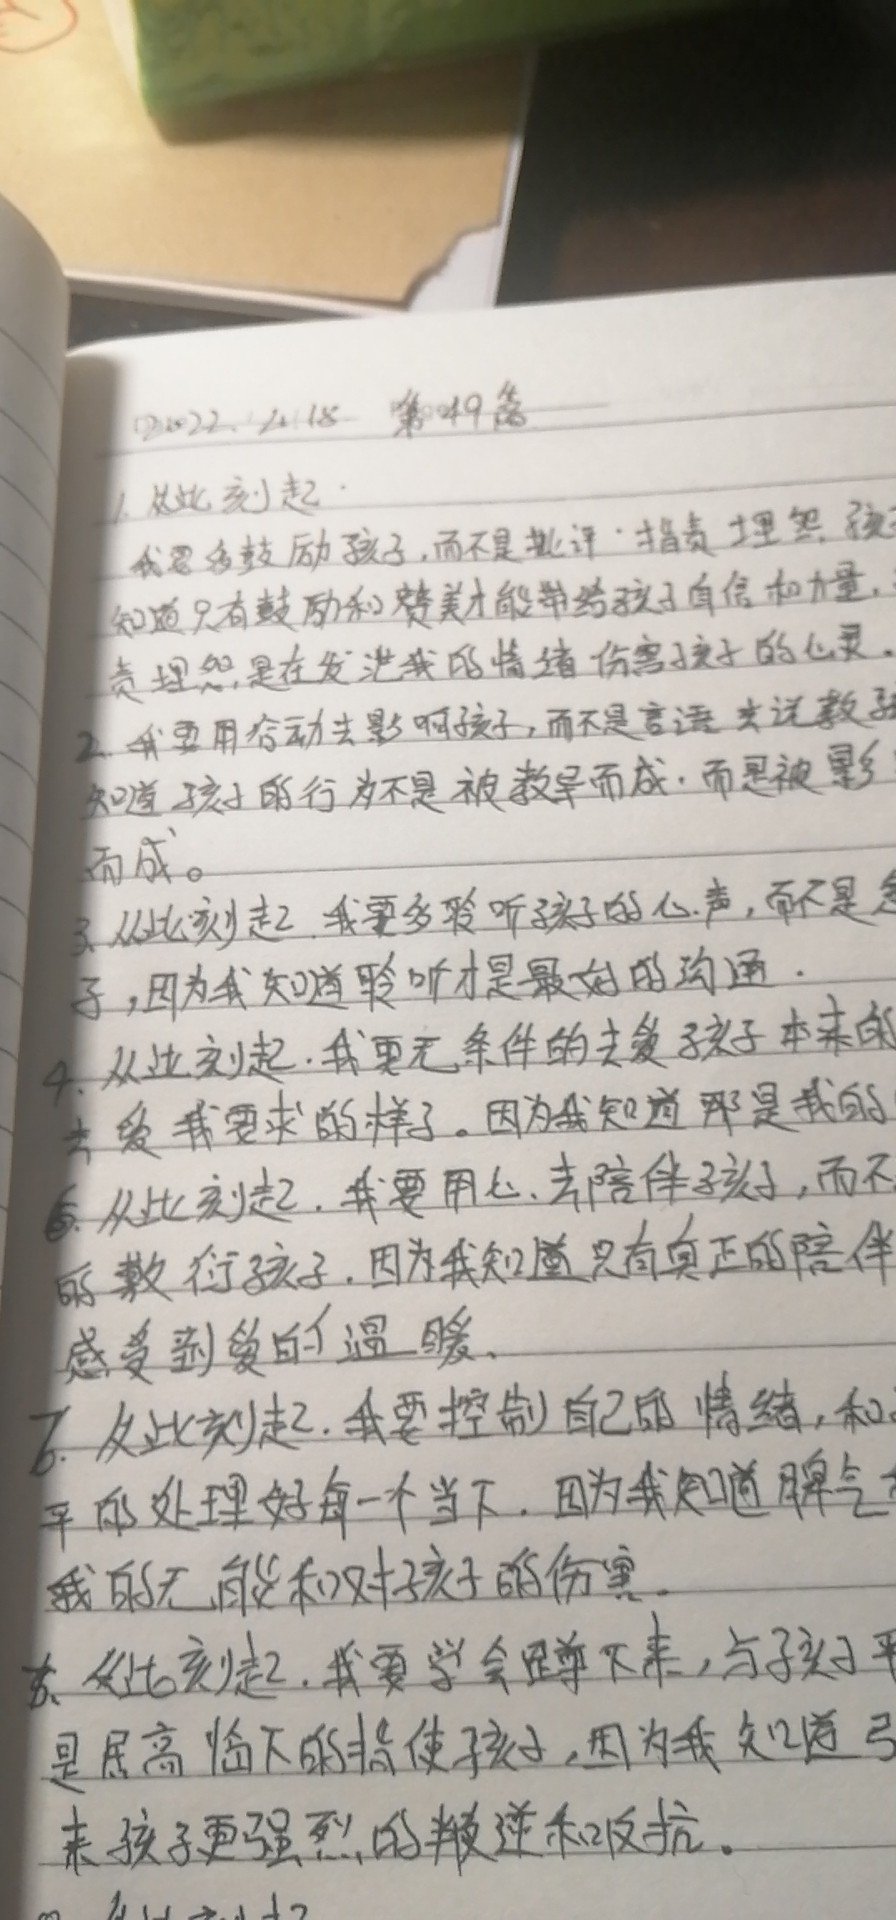 2022. 12.18 第049篇
1. 从此刻起.
我要多鼓励孩子,而不是批评·指责 埋怨. 孩
知道只有鼓励和赞美才能带给孩子自信和力量.
责埋怨.是在发泄我的情绪 伤害孩子的心灵.
2. 我要用行动去影响孩子,而不是言语去说教孩
知道孩子的行为不是被教导而成.而是被影
而成。
3. 从此刻起.我要多聆听孩子的心声,而不是
子,因为我知道聆听才是最好的沟通.
4. 从此刻起.我要无条件的去爱孩子本来的
去爱我要求的样子。因为我知道那是我的
从此刻起.我要用心去陪伴孩子,而不
的敷衍孩子.因为我知道只有真正的陪伴
感受到爱的温暖.
6. 从此刻起.我要控制自己的情绪,和
平的处理好每一个当下.因为我知道脾气
我的无能和对孩子的伤害.
从此刻起.我要学会蹲下来,与孩子平
是居高临下的指使孩子,因为我知道
来孩子更强烈的叛逆和反抗.
从此刻起